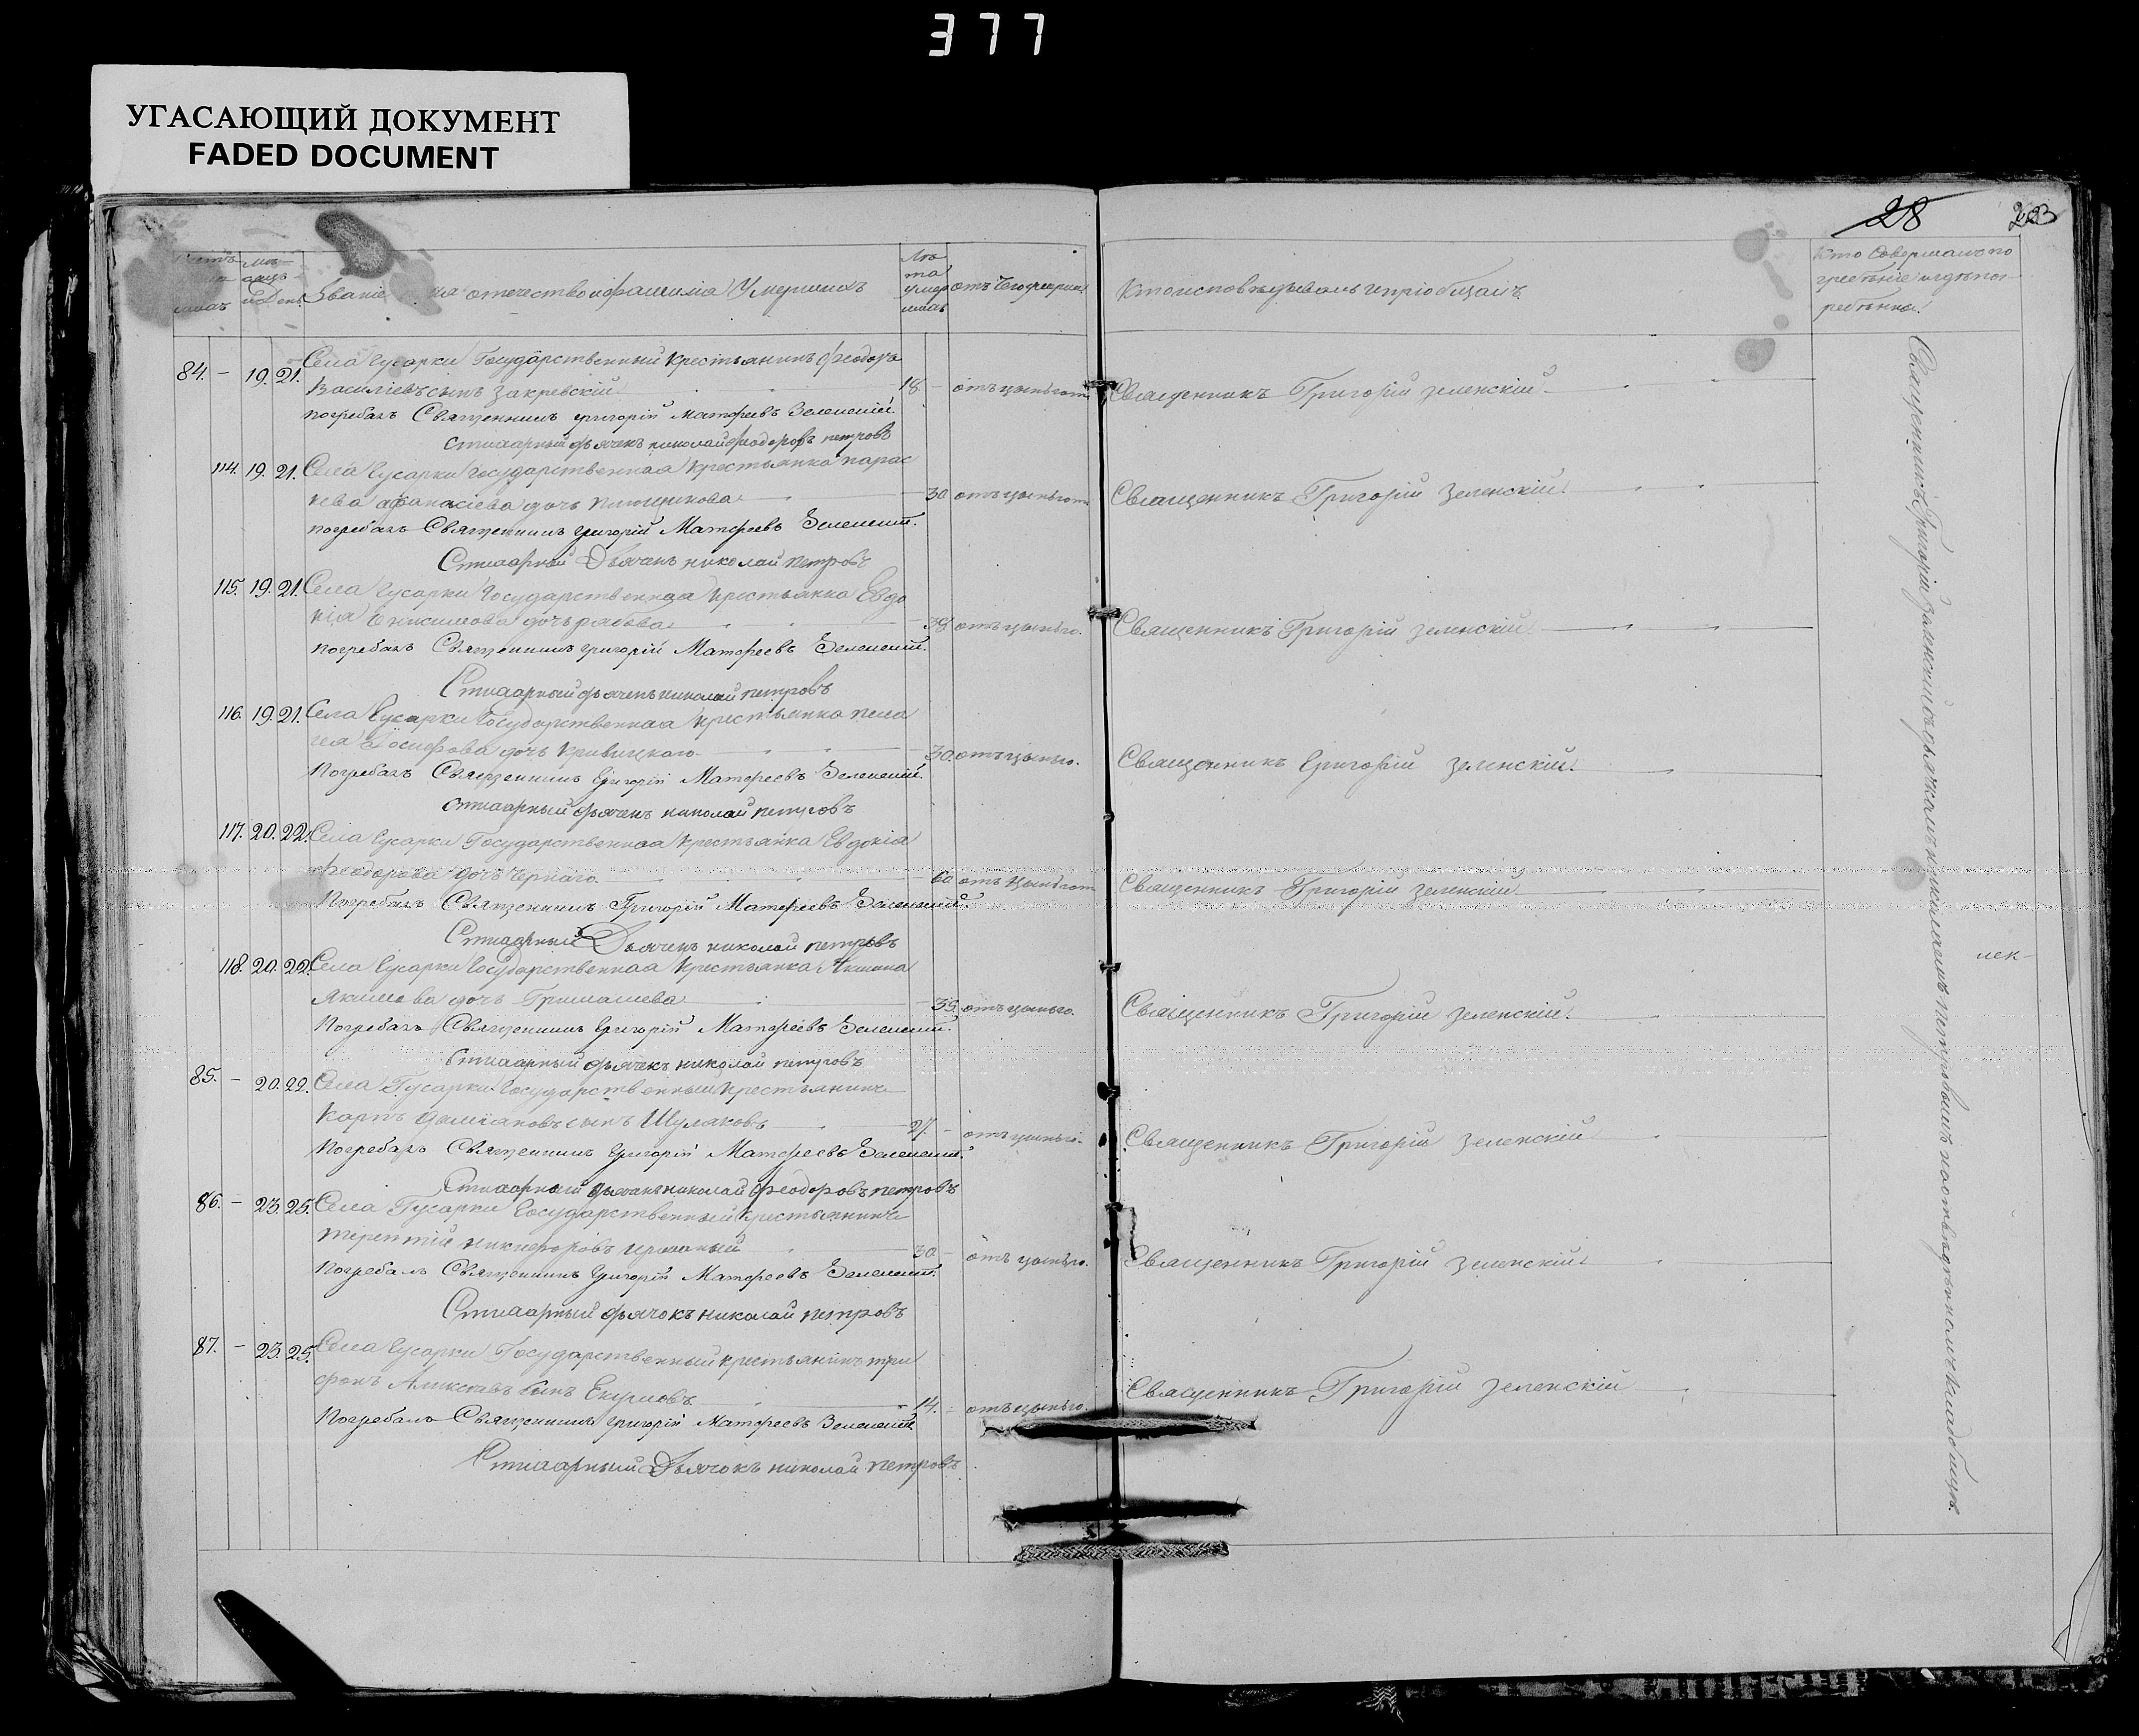 377
УГАСАЮЩИЙ ДОКУМЕНТ
FADED DOCUMENT
28
Мѣ-
сяцъ
и день
Званіе отечество и фамилія Умершихъ
Лѣ
та
умер
шихъ
отъ чего умеръ
Кто исповѣдывалъ и пріобщалъ
Кто совершалъ по
гребеніе и гдѣ пог
ребены
84. – 19. 21. Села Гусарки Государственный крестьянинъ Феодоръ
Василіевъ сынъ Закревскій 18 – отъ цынготн Священникъ Григорій Зеленскій
погребалъ Священникъ Григорій Матфеевъ Зеленскій
Стихарный дьячекъ николай феодоровъ петровъ
114. 19. 21. Села Гусарки Государственная крестьянка парас
кева афанасіева дочь 30 отъ цынготн Священникъ Григорій Зеленскій
погребалъ Священникъ Григорій Матфеевъ Зеленскій
Стихарный Дьячекъ николай петровъ
115. 19. 21. Села Гусарки Государственная крестьянка Евдо
кія дочь рябова отъ цынго. Священникъ Григорій Зеленскій
погребалъ Священникъ Григорій Матфеевъ Зеленскій
Стихарный дьячекъ николай петровъ
116. 19. 21. Села Гусарки Государственная крестьянка пела
гея Іосифова дочь Кривицкаго 30. отъ цынго. Священникъ Григорій Зеленскій
Погребалъ Священникъ Григорій Матфеевъ Зеленскій
Стихарный дьячекъ николай петровъ
117. 20. 22. Села Гусарки Государственная крестьянка Евдокія
феодорова дочь Чернаго 60 отъ цынготн Священникъ Григорій Зеленскій
Погребалъ Священникъ Григорій Матфеевъ Зеленскій
Стихарный Дьячекъ николай петровъ
118. 20. 22. Села Гусарки Государственная крестьянка
Якимова дочь 35. отъ цынго. Священникъ Григорій Зеленскій
Погребалъ Священникъ Григорій Матфеевъ Зеленскій
Стихарный дьячекъ николай петровъ
85. – 20. 22. Села Гусарки Государственный крестьянинъ
Карпъ Даміановъ сынъ Шулаковъ 27. – отъ цынго. Священникъ Григорій Зеленскій
Погребалъ Священникъ Григорій Матфеевъ Зеленскій
Стихарный дьячекъ николай феодоровъ петровъ
86. – 23. 25. Села Гусарки Государственный крестьянинъ
терентій никифоровъ 30 – отъ цынго. Священникъ Григорій Зеленскій
Погребалъ Священникъ Григорій Матфеевъ Зеленскій
Стихарный дьячокъ николай петровъ
87. – 23. 25. Села Гусарки Государственный крестьянинъ три
фонъ сынъ 14. отъ цынго. Священникъ Григорій Зеленскій
Погребалъ Священникъ Григорій Матфеевъ Зеленскій
Стихарный Дьячокъ николай петровъ
Священникъ Григорій Зеленскій съ дьячкомъ николаемъ петровымъ на кладбищѣ